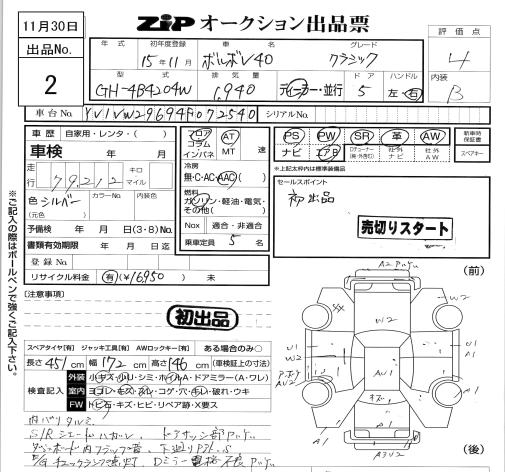 11月30日
ZIP オークション出品票
出品No.
2
年式 初年度登録 車名 グレード
15年11月 ボルボV40 クラシック
評価点
4
内装
B
型式 排気量 ドア ハンドル
GH-4B4204W 1,940 ディーラー・並行 5 左・右
車台No. YV1VW29694F072540 シリアルNo.
車歴 自家用・レンタ・( )
車検 年 月
走行 79,212 キロ マイル
色 シルバー カラーNo. 内装色
(元色 )
予備検 年 月 日(3・8)No.
書類有効期限 年 月 日迄
登録No.
リサイクル料金 有(¥16,950) 未
フロア コラム インパネ
AT MT 速
冷房
無・C・AC・AAC( )
燃料
ガソリン・軽油・電気・その他( )
Nox 適合・非適合
乗車定員 5 名
PS PW SR 革 AW
ナビ エアB
社外ナビ 社外AW
新車時保証書
スペアキー
※上記太枠内は標準装備品
セールスポイント
初出品
売切りスタート
[注意事項]
初出品
スペアタイヤ[有] ジャッキ工具[有] AWロックキー[有] ある場合のみ○
長さ 451 cm 幅 172 cm 高さ 146 cm (車検証上の寸法)
検査記入
外装 小キズ・小U・シミ・ホイルA・ドアミラー(A・ワレ)
室内 ヨゴレ・キズ・スレ・コゲ・穴・キレ・破レ・ウキ
FW トビ石・キズ・ヒビ・リペア跡・X要ス
内バリタルミ
(前)
W2
W2
U1
W2
AU1
U1
A1
キズ
A1
A1
A3U2
(後)
※ご記入の際はボールペンで強くご記入下さい。